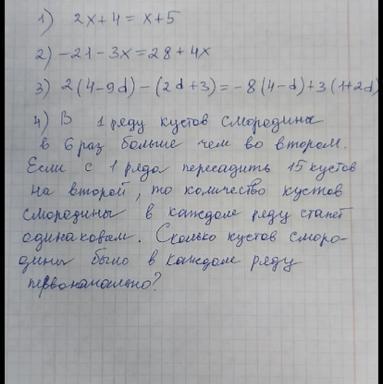 1) 2x+4 = x+5
2) -21-3x=28+4x
3) 2(4-9d)-(2d+3)=-8(4-d)+3(1+2d)
4) В 1 ряду кустов смородины
в 6 раз больше чем во втором.
Если с 1 ряда пересадить 15 кустов
на второй, то количество кустов
смородины в каждом ряду станет
одинаковым. Сколько кустов сморо-
дины было в каждом ряду
первоначально?